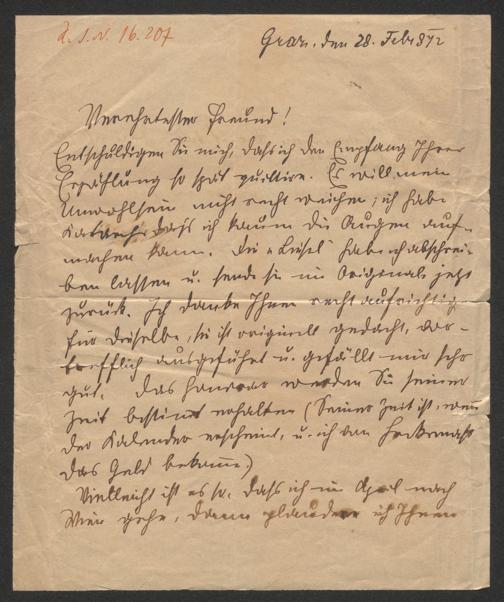 Z. I. N. 16.207
Graz, den 28. Feb 872
Verehrtester Freund!
Entschuldigen Sie mich, daß ich den Empfang Ihrer
Erzählung so spät quittire. Es will mein
Unwohlsein nicht recht weichen; ich habe
Katarrh, daß ich kaum die Augen auf-
machen kann. Die „Liesel" habe ich abschrei-
ben lassen u. sende sie im Original jetzt
zurück. Ich danke Ihnen recht aufrichtig
für dieselbe, sie ist originell gedacht, vor-
trefflich ausgeführt u. gefällt mir sehr
gut. Das Honorar werden Sie seiner
Zeit bestimt erhalten (Seiner Zeit ist, wenn
der Kalender erscheint, u. ich von
das Geld bekome.)
Vielleicht ist es so, daß ich im April nach
Wien gehe, dann plaudere ich Ihnen